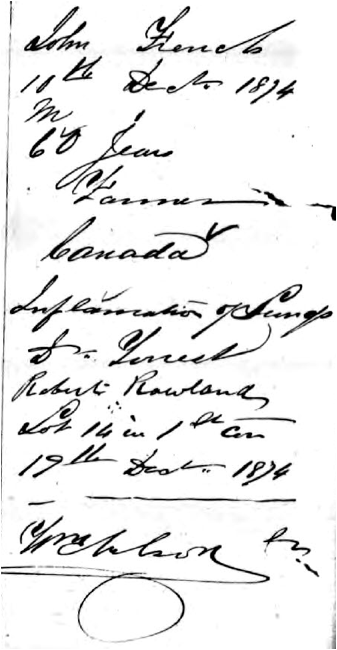 John French
10th Dect. 1874
M
60 Years
Farmer
Canada
Inflamation of Lungs
Dr.
Robert Rowland
Lot 14 in 1st Con
19th Dect. 1874
Wm